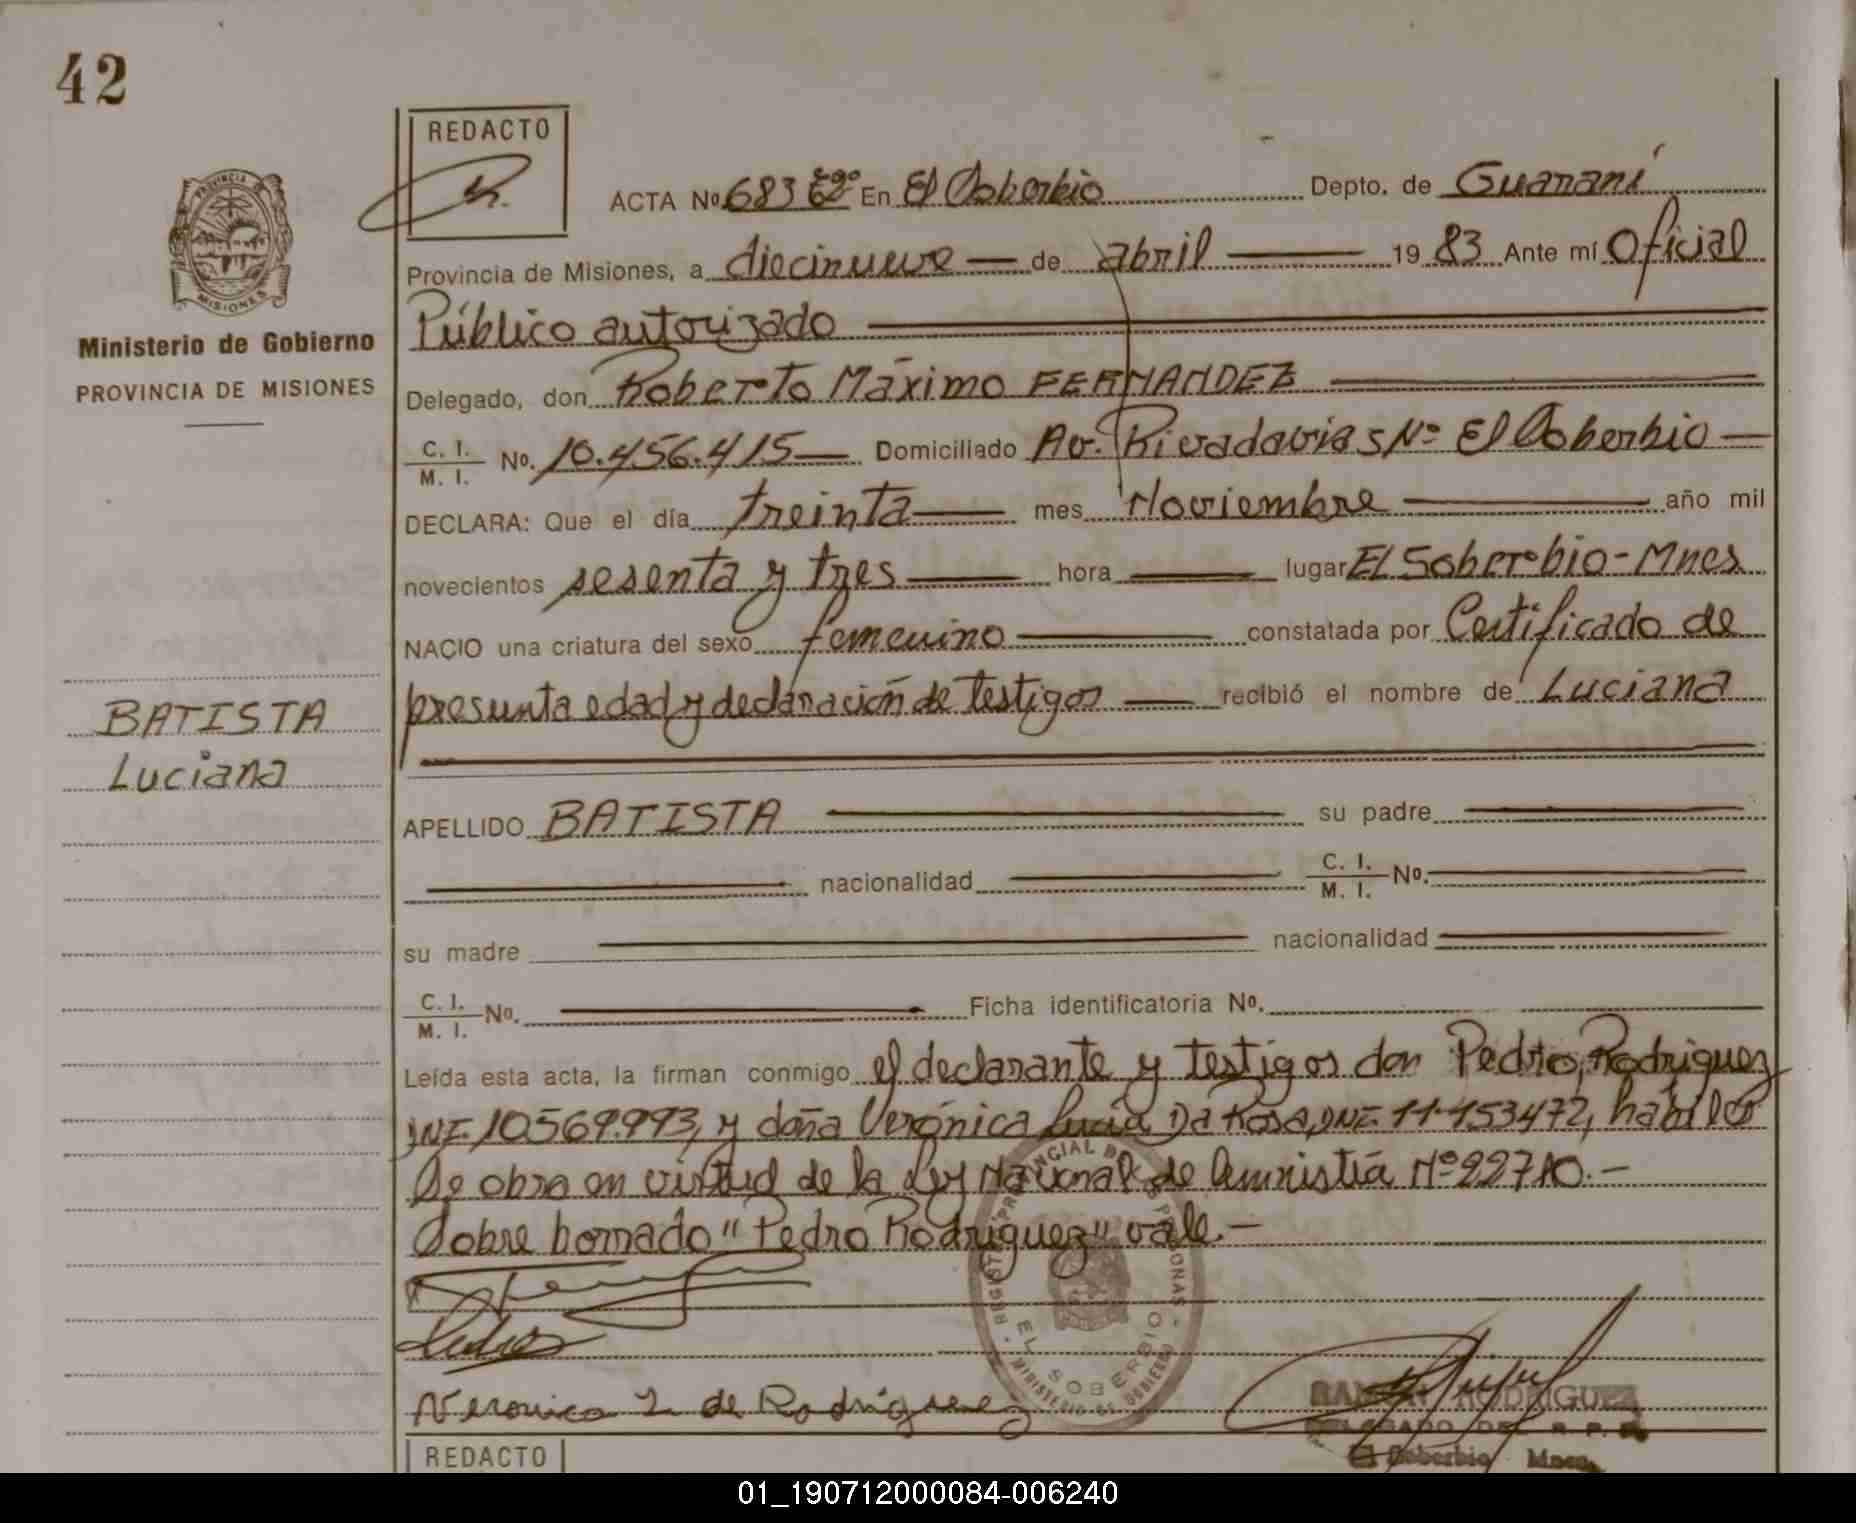 42
REDACTO
PROVINCIA DE
MISIONES
Ministerio de Gobierno
PROVINCIA DE MISIONES
ACTA Nº 683 En El Soberbio Depto. de Guaraní
Provincia de Misiones, a diecinueve — de abril — 1983 Ante mí Oficial
Público autorizado
Delegado, don Roberto Máximo FERNANDEZ
C. I.
M. I. No. 10.456.415— Domiciliado Av. Rivadavia S/Nº El Soberbio —
DECLARA: Que el día treinta — mes Noviembre — año mil
novecientos sesenta y tres — hora — lugar El Soberbio - Mnes
NACIO una criatura del sexo femenino — constatada por Certificado de
presunta edad y declaración de testigos — recibió el nombre de Luciana
BATISTA
Luciana
APELLIDO BATISTA — su padre —
— nacionalidad — C. I.
M. I. Nº. —
su madre — nacionalidad —
C. I.
M. I. Nº. — Ficha identificatoria Nº.
Leída esta acta, la firman conmigo el declarante y testigos don Pedro, Rodriguez
DNI. 10569.993, y doña Verónica Lucia Da Rosa, DNI. 11.153472, habiles
Se obra en virtud de la Ley Nacional de Amnistia Nº 22710.-
Sobre borrado "Pedro Rodriguez" vale.-
EL SOBERBIO
MINISTERIO DE GOBIERNO
Veronica L de Rodriguez
RODRIGUEZ
DELEGADO DEL R. P.
El Soberbio Mnes.
REDACTO
01_190712000084-006240